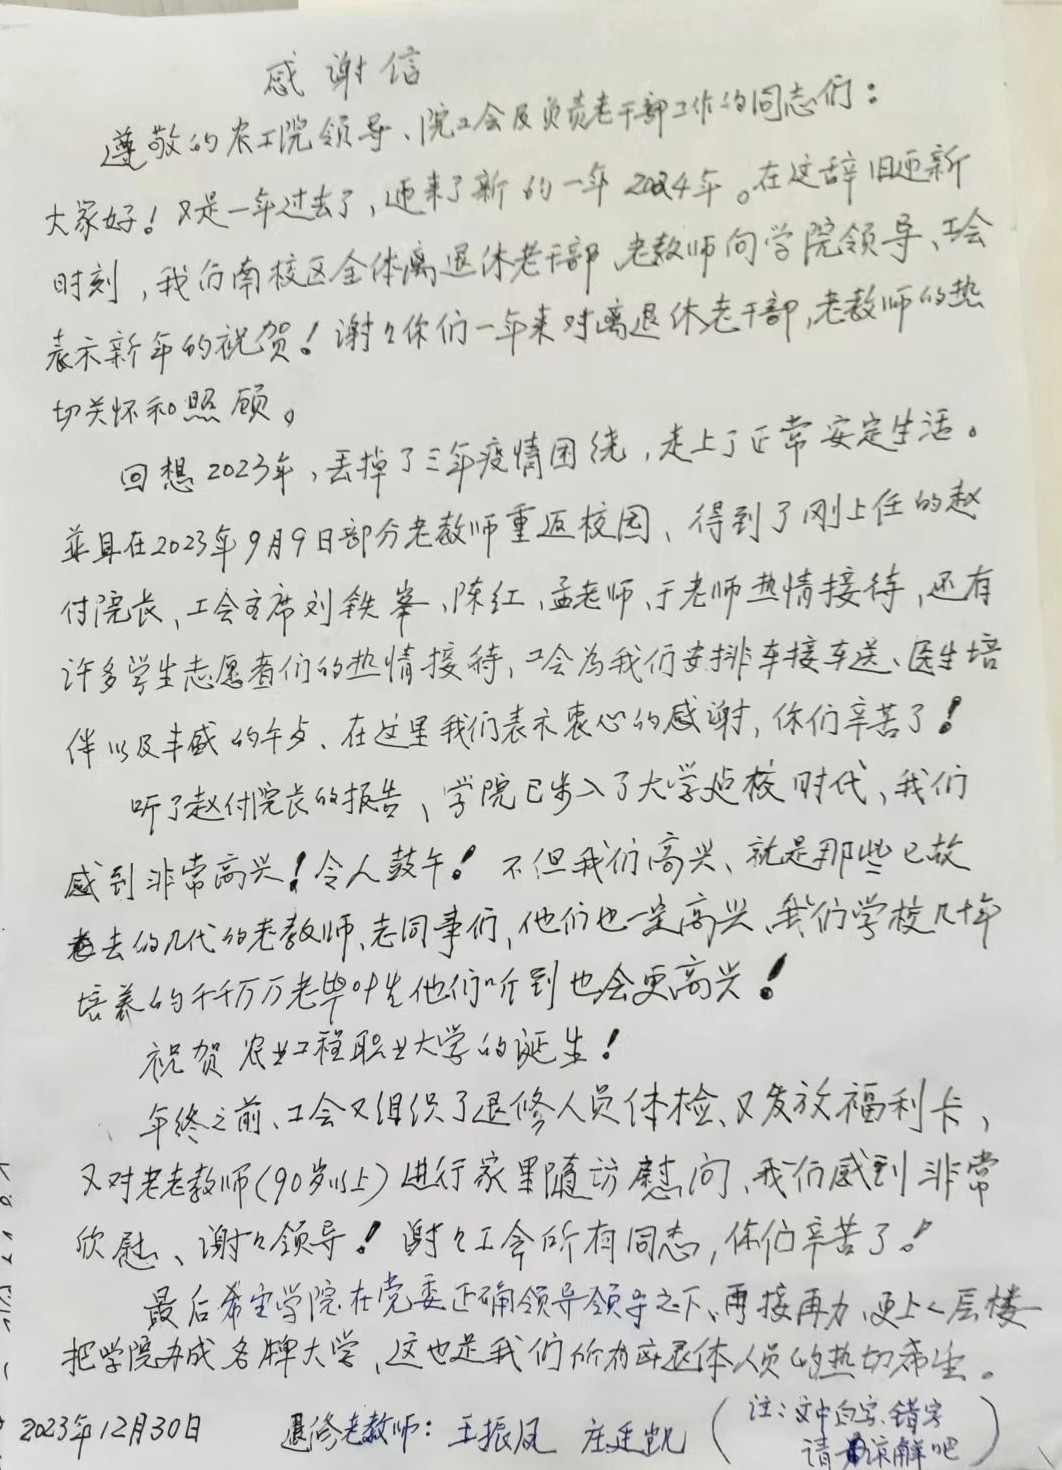 感谢信
尊敬的农工院领导、院工会及负责老干部工作的同志们：
大家好！又是一年过去了，迎来了新的一年2024年。在这辞旧迎新
时刻，我们南校区全体离退休老干部、老教师向学院领导、工会
表示新年的祝贺！谢々你们一年来对离退休老干部，老教师的热
切关怀和照顾。
回想2023年，丢掉了三年疫情困绕，走上了正常安定生活。
并且在2023年9月9日部分老教师重返校园、得到了刚上任的赵
付院长、工会主席刘铁峯、陈红、孟老师、于老师热情接待，还有
许多学生志愿者们的热情接待，工会为我们安排车接车送、医生培
伴以及丰盛的午歺、在这里我们表示衷心的感谢，你们辛苦了！
听了赵付院长的报告、学院已步入了大学边校时代、我们
感到非常高兴！令人鼓午！不但我们高兴、就是那些已故
去的几代的老教师、老同事们，他们也一定高兴、我们学校几十年
培养的千千万万老毕业生他们听到也会更高兴！
祝贺农业工程职业大学的诞生！
年终之前、工会又组织了退修人员体检、又发放福利卡，
又对老老教师（90岁以上）进行家里随访慰问、我们感到非常
欣慰、谢々领导！谢々工会所有同志，你们辛苦了！
最后希望学院在党委正确领导领导之下、再接再力、更上一层楼
把学院办成名牌大学、这也是我们所有离退休人员的热切希望。
2023年12月30日 退修老教师：王振凤 庄廷凯（注：文中白字、错字
请谅解吧）